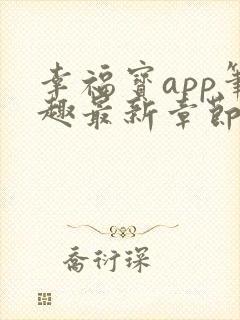 幸福宝app笔
趣最新章节
乔衍琛